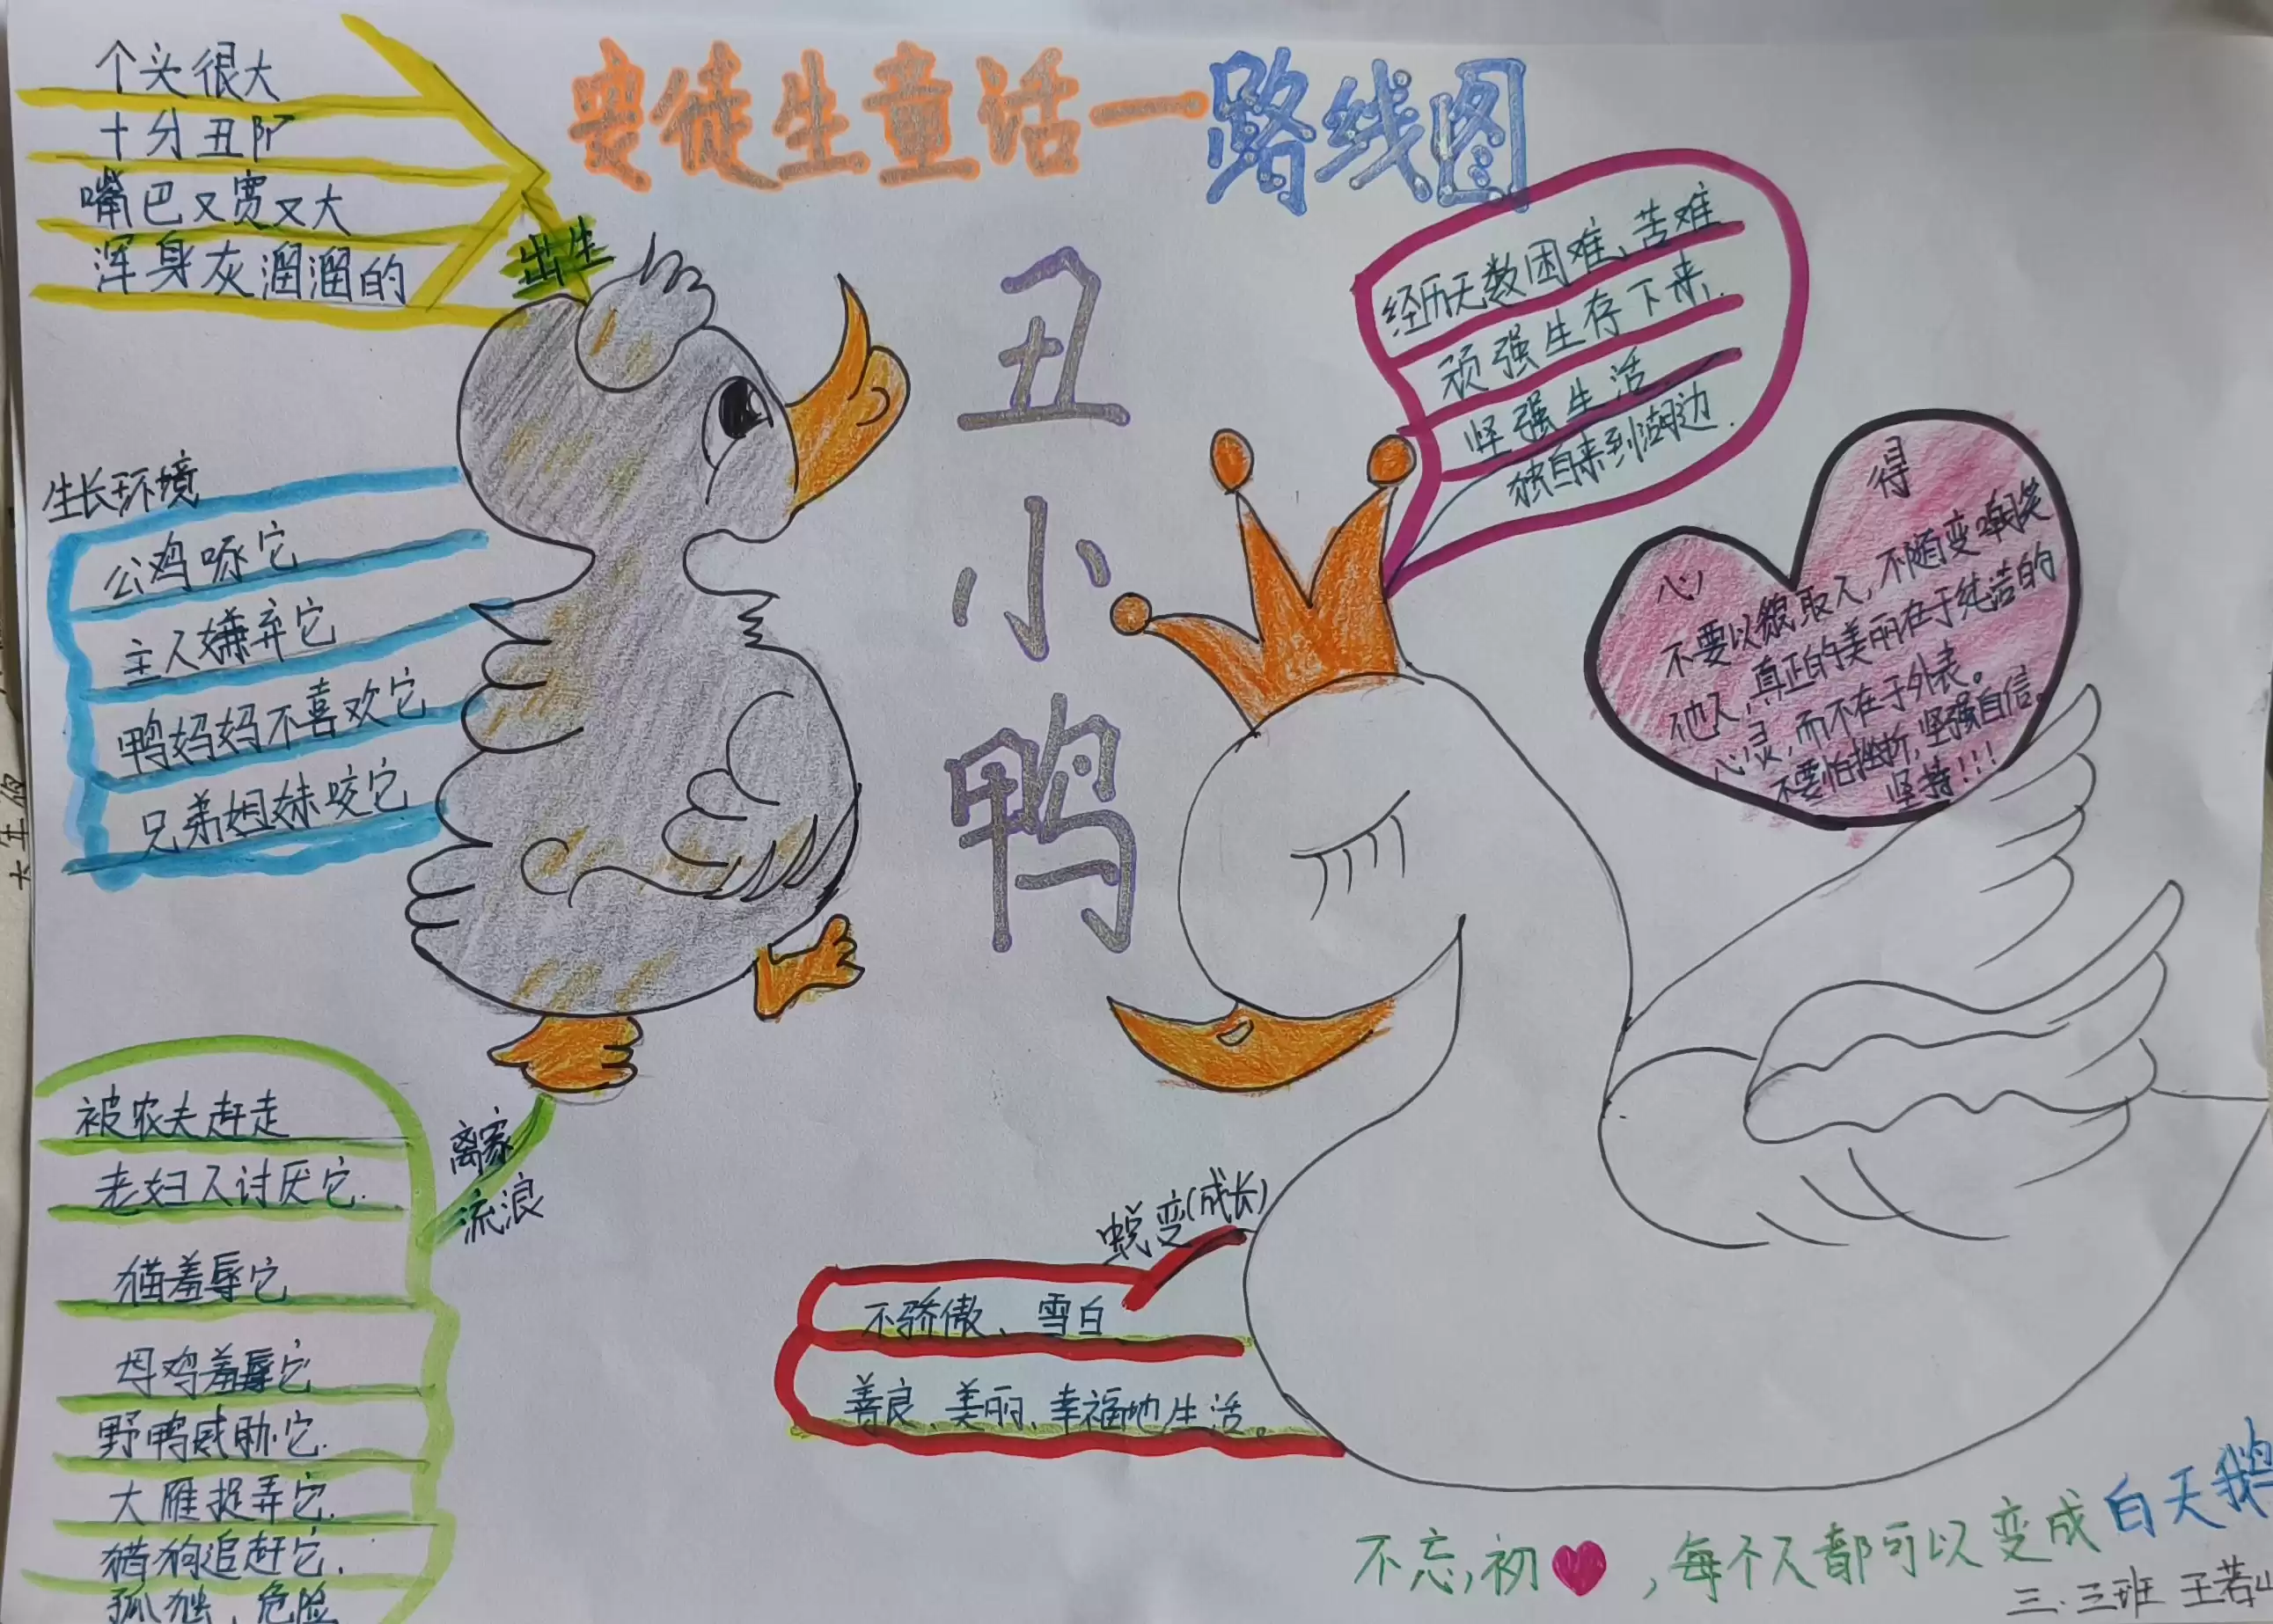 安徒生童话一路线图
丑小鸭
出生
个头很大
十分丑陋
嘴巴又宽又大
浑身灰溜溜的
生长环境
公鸡啄它
主人嫌弃它
鸭妈妈不喜欢它
兄弟姐妹咬它
离家
流浪
被农夫赶走
老妇人讨厌它.
猫羞辱它
母鸡羞辱它
野鸭威胁它.
大雁捉弄它.
猎狗追赶它.
孤独、危险
经历无数困难、苦难
顽强生存下来.
坚强生活
独自来到湖边.
蜕变(成长)
不骄傲、雪白
善良、美丽、幸福地生活。
心得
不要以貌取人,不随变嘲笑
他人,真正的美丽在于纯洁的
心灵,而不在于外表。
不要怕挫折,坚强自信。
坚持!!!
不忘,初,每个人都可以变成白天鹅
三.三班 王若